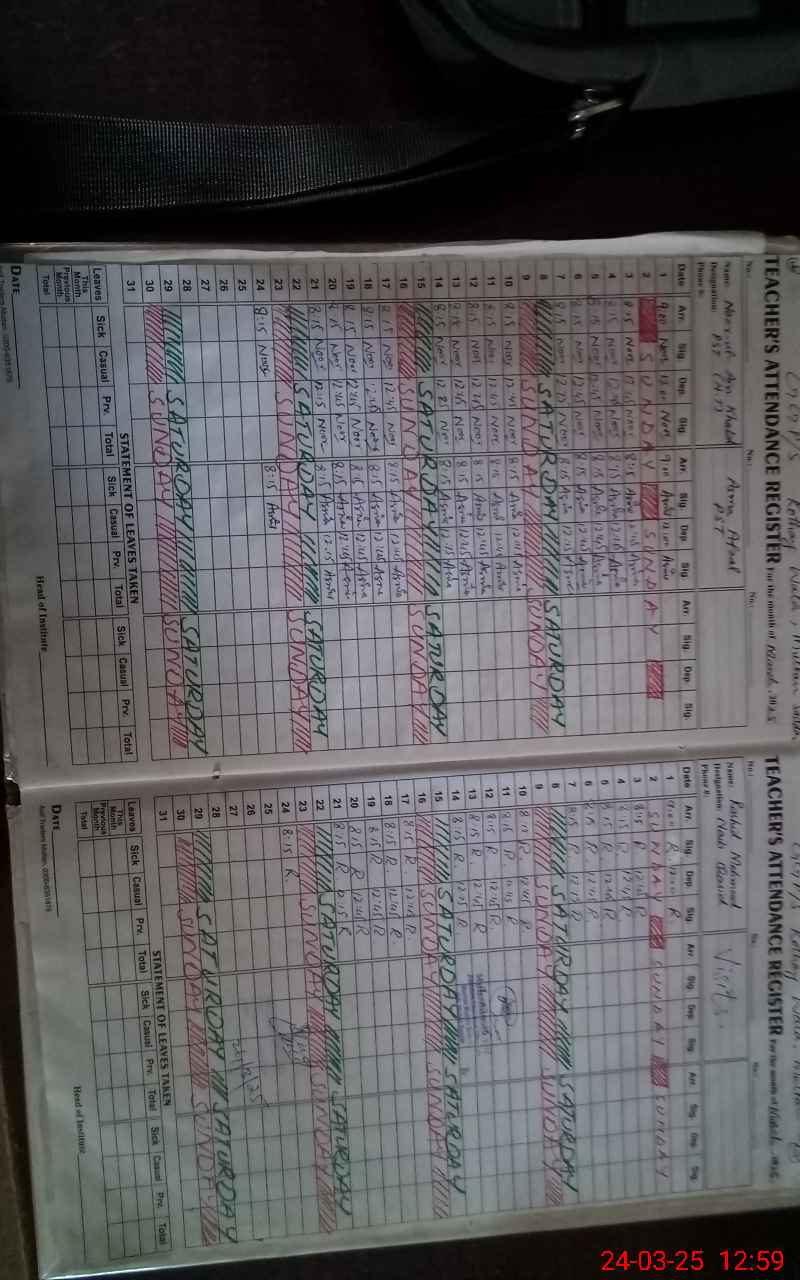 TEACHER'S ATTENDANCE REGISTER For the month of March, 2025
No: No: No:
Name: Asma Afzal
Designation: PST PST
Phone #:
Date Arr. Sig. Dep. Sig. Arr. Sig. Dep. Sig. Arr. Sig. Dep. Sig.
1 9:00 Noor 12:00 Noor 9:00 Asma 12:00 Asma
2 SUNDAY SUNDAY
3 8:15 Noor 12:45 Noor 8:15 Asma 12:45 Asma
4 8:15 Noor 12:45 Noor 8:15 Asma 12:45 Asma
5 8:15 Noor 12:45 Noor 8:15 Asma 12:45 Asma
6 8:15 Noor 12:45 Noor 8:15 Asma 12:45 Asma
7 8:15 Noor Noor 8:15 Asma 12:15 Asma
8 SATURDAY SATURDAY
9 SUNDAY SUNDAY
10 8:15 Noor 12:45 Noor 8:15 Asma 12:45 Asma
11 8:15 Noor 12:45 Noor 8:15 Asma 12:45 Asma
12 8:15 Noor 12:45 Noor 8:15 Asma 12:45 Asma
13 8:15 Noor 12:45 Noor 8:15 Asma 12:45 Asma
14 8:15 Noor Noor 8:15 Asma 12:15 Asma
15 SATURDAY SATURDAY
16 SUNDAY SUNDAY
17 8:15 Noor 12:45 Noor 8:15 Asma 12:45 Asma
18 8:15 Noor 12:45 Noor 8:15 Asma 12:45 Asma
19 8:15 Noor 12:45 Noor 8:15 Asma 12:45 Asma
20 8:15 Noor 12:45 Noor 8:15 Asma 12:45 Asma
21 8:15 Noor 12:15 Noor 8:15 Asma 12:15 Asma
22 SATURDAY SATURDAY
23 SUNDAY SUNDAY
24 8:15 Noor 8:15 Asma
25
26
27
28
29 SATURDAY SATURDAY
30 SUNDAY SUNDAY
31
STATEMENT OF LEAVES TAKEN
Leaves Sick Casual Prv. Total Sick Casual Prv. Total Sick Casual Prv. Total
This Month
Previous Month
Total
Head of Institute
DATE
TEACHER'S ATTENDANCE REGISTER For the month of March, 2025
No: No: No:
Name: Rashid Mehmood Visits
Designation: Naib Qasid
Phone #:
Date Arr. Sig. Dep. Sig. Arr. Sig. Dep. Sig. Arr. Sig. Dep. Sig.
1 9:00 R. 12:00 R.
2 SUNDAY SUNDAY SUNDAY
3 8:15 R 12:45 R
4 8:15 R 12:45 R
5 8:15 R 12:45 R
6 8:15 R 12:45 R
7 8:15 R 12:15 R
8 SATURDAY SATURDAY
9 SUNDAY SUNDAY
10 8:15 R. 12:45 R.
11 8:15 R 12:45 R
12 8:15 R 12:45 R
13 8:15 R. 12:45 R
14 8:15 R. 12:15 R
15 SATURDAY SATURDAY
16 SUNDAY SUNDAY
17 8:15 R. 12:45 R.
18 8:15 R. 12:45 R
19 8:15 R 12:45 R
20 8:15 R 12:45 R
21 8:15 R 12:15 R
22 SATURDAY SATURDAY
23 SUNDAY SUNDAY
24 8:15 R.
25
26
27
28
29 SATURDAY SATURDAY
30 SUNDAY SUNDAY
31
STATEMENT OF LEAVES TAKEN
Leaves Sick Casual Prv. Total Sick Casual Prv. Total Sick Casual Prv. Total
This Month
Previous Month
Total
Head of Institute
DATE
24-03-25 12:59